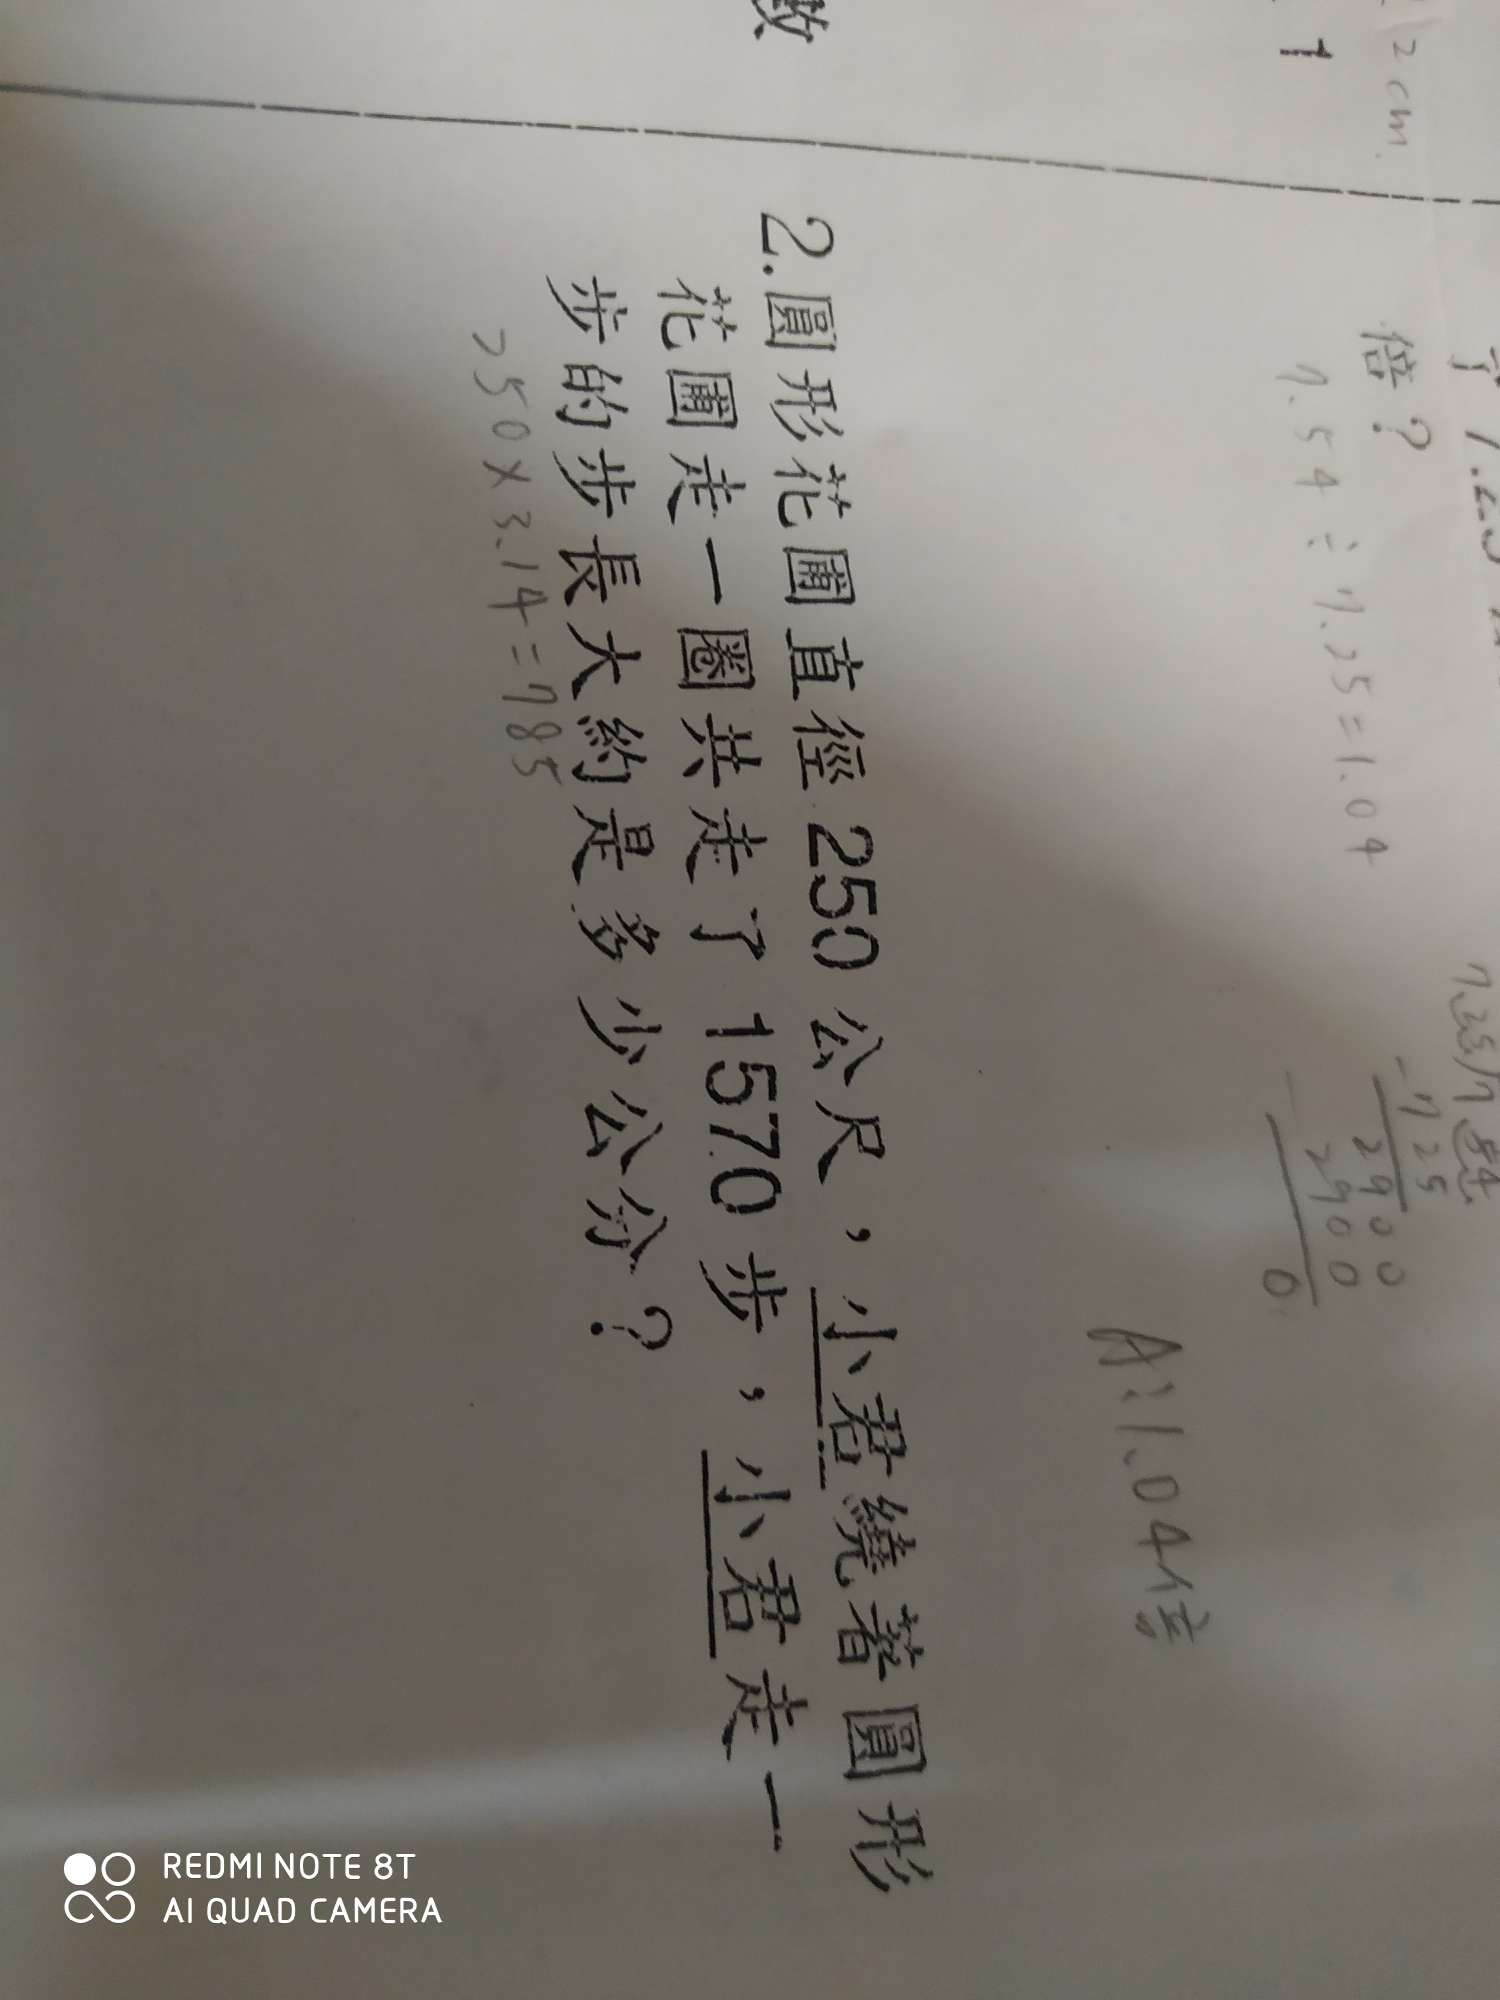 2cm
1
數
倍？
7.54÷7.25=1.04
725
2900
2900
0
A:1.04倍
2.圓形花圃直徑250公尺，小君繞著圓形
花圃走一圈共走了1570步，小君走一
步的步長大約是多少公分？
250×3.14=785
REDMI NOTE 8T
AI QUAD CAMERA